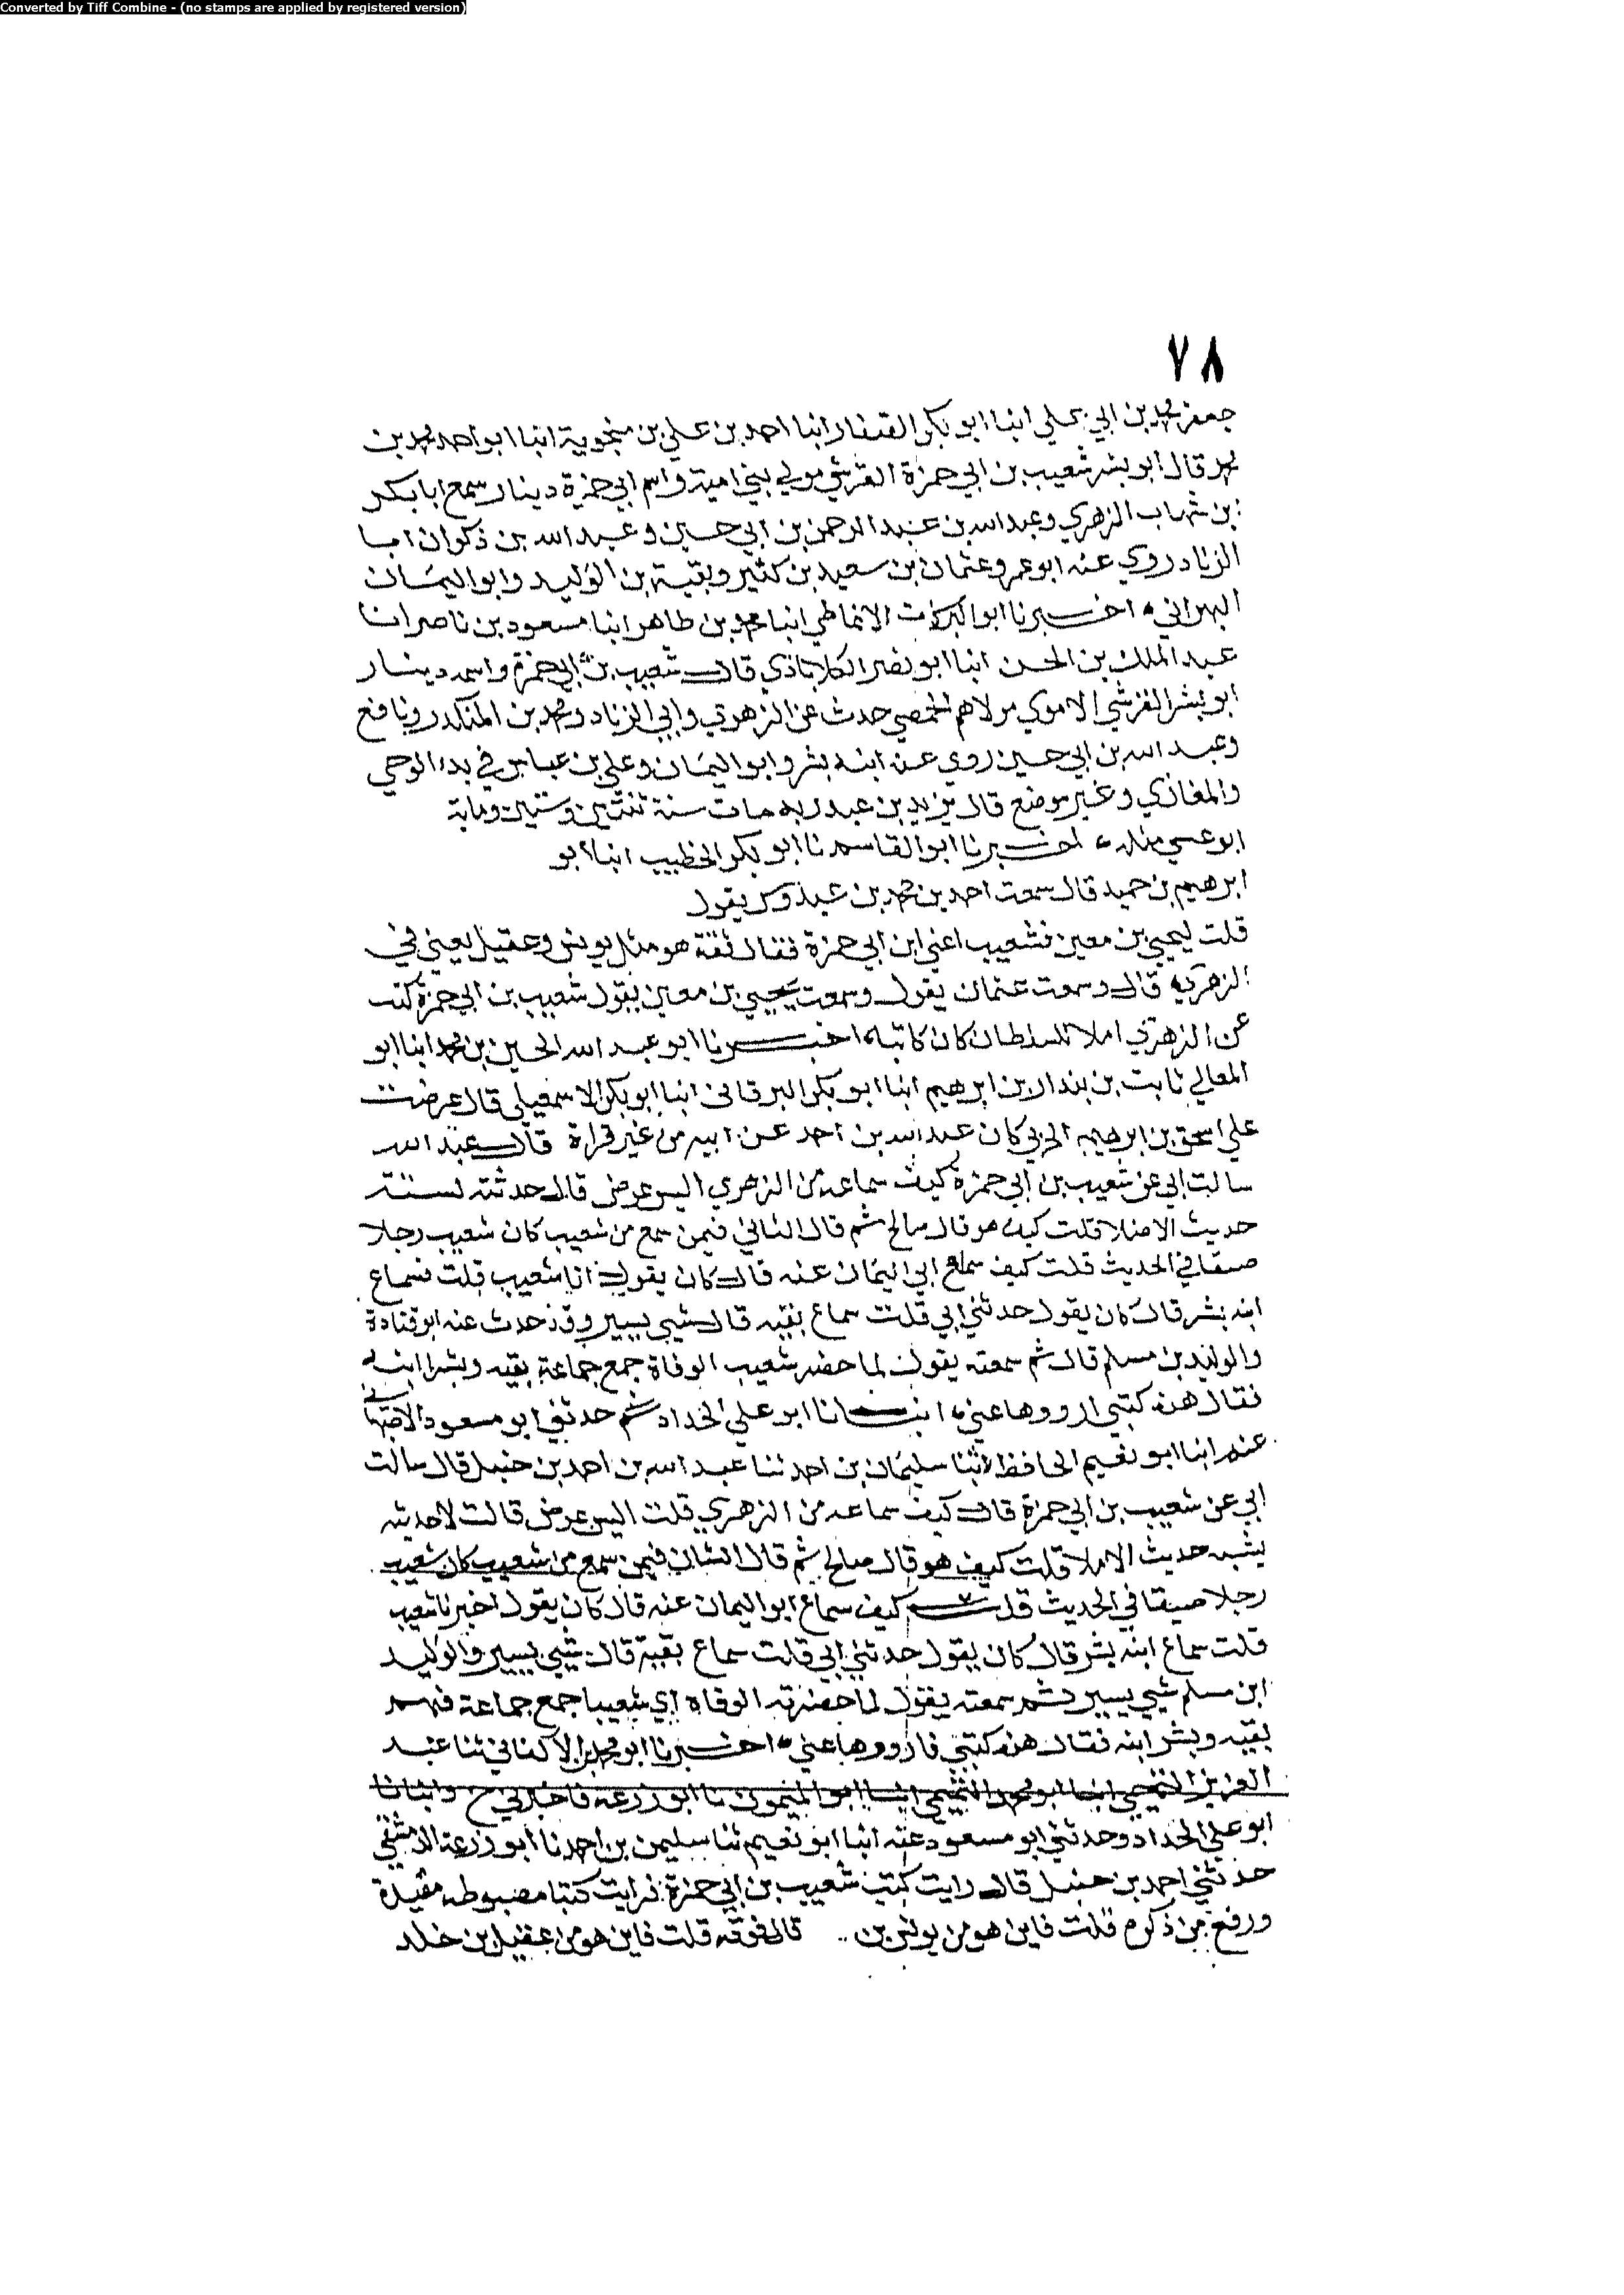 Converted by Tiff Combine - (no stamps are applied by registered version)
٧٨
جعفر محمد بن ابي علي انبا ابو بكر الصفار انبا احمد بن علي بن منجوية انبا ابو احمد محمد بن
محمد قال ابو بشر شعيب بن ابي حمزة القرشي مولي بني امية واسم ابي حمزة دينار سمع ابا بكر
بن شهاب الزهري وعبد الله بن عبد الرحمن بن ابي حسين وعبد الله بن ذكوان ابا
الزناد روي عنه ابو عمر وعثمان بن سعيد بن كثير وبقية بن الوليد وابو اليمان
البهراني اخبرنا ابو البركات الانماطي انبا محمد بن طاهر انبا مسعود بن ناصر انا
عبد الملك بن الحسن انبا ابو نصر الكلاباذي قال شعيب بن ابي حمزة واسمه دينار
ابو بشر القرشي الاموي مولاهم الحمصي حدث عن الزهري وابي الزناد ومحمد بن المنكدر ونافع
وعبد الله بن ابي حسين روي عنه ابنه بشر وابو اليمان وعلي بن عباس في بدء الوحي
والمغازي وغير موضع قال يزيد بن عبد ربه مات سنة ثنتين وستين وماية
ابو عسي مثله اخبرنا ابو القاسم نا ابو بكر الخطيب انبا ابو
ابرهيم بن حميد قال سمعت احمد بن محمد بن عبدوس يقول
قلت ليحيي بن معين فشعيب اعني ابن ابي حمزة فقال ثقة هو مثل يونس وعقيل يعني في
الزهري قال وسمعت عثمان يقول وسمعت يحيي بن معين يقول شعيب بن ابي حمزة كتب
عن الزهري املا للسلطان كان كاتبا اخبرنا ابو عبد الله الحسين بن محمد انبا ابو
المعالي ثابت بن بندار بن ابرهيم انبا ابو بكر البرقاني انبا ابو بكر الاسمعيلي قال عرضت
علي اسحق بن ابرهيم الحربي كان عبد الله بن احمد عن ابيه من غير قراة قال عبد الله
سالت ابي عن شعيب بن ابي حمزة كيف سماعه من الزهري اليس عرض قال حدثته لسته
حديث الاملا قلت كيف هو قال صالح ثم قال الثاني فيمن سمع من شعيب كان شعيب رجلا
صيقا في الحديث قلت كيف سماع ابي اليمان عنه قال كان يقول انا شعيب قلت فسماع
ابنه بشر قال كان يقول حدثني ابي قلت سماع بقيه قال شيي يسير وقد حدث عنه ابو قتادة
والوليد بن مسلم قال ثم سمعته يقول لما حضر شعيب الوفاة جمع جماعة بقيه وبشرا ابنه
فقال هذه كتبي ارووها عني انبانا ابو علي الحداد ثم حدثني ابو مسعود الاصبهاني
عنه انبا ابو نعيم الحافظ ثنا سليمان بن احمد ثنا عبد الله بن احمد بن حنبل قال سالت
ابي عن شعيب بن ابي حمزة قال كيف سماعه من الزهري قلت اليس عرض قالت لا حديثه
يشبه حديث الاملا قلت كيف هو قال صالح ثم قال الشان فيمن سمع من شعيب كان شعيب
رجلا صيقا في الحديث قلت كيف سماع ابو اليمان عنه قال كان يقول اخبرنا شعيب
قلت سماع ابنه بشر قال كان يقول حدثني ابي قلت سماع بقية قال شيي يسير والوليد
ابن مسلم شيي يسير ثم سمعته يقول لما حضرته الوفاه اي شعيبا جمع جماعة فيهم
بقيه وبشر ابنه فقال هذه كتبي فارووها عني اخبرنا ابو محمد بن الاكفاني ثنا عبد
العزيز التميمي انبا ابو محمد التميمي انبا ابو الميمون نا ابو زرعة فاخبرني ح وانبانا
ابو علي الحداد وحدثني ابو مسعود عنه انبا ابو نعيم ثنا سليمن بن احمد نا ابو زرعة الدمشقي
حدثني احمد بن حنبل قال رايت كتب شعيب بن ابي حمزة فرايت كتبا مضبوطه مقيدة
ورفع من ذكره قلت فاين هو من يونس بن .. قال فوقه قلت فاين هو من عقيل بن خلد